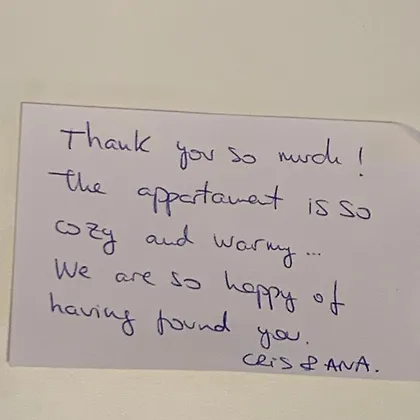 Thank you so much!
The appartament is so
cozy and warmy...
We are so happy of
having found you.
CRIS & ANA.